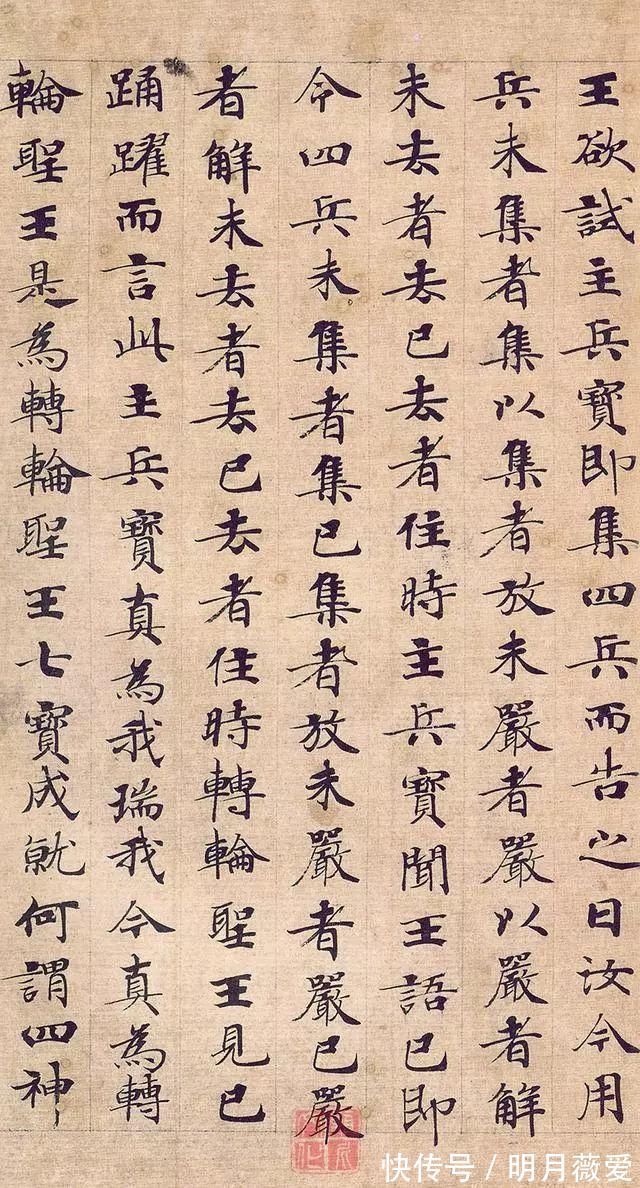 王欲試主兵寶即集四兵而告之曰汝今用
兵未集者集以集者放未嚴者嚴以嚴者解
未去者去已去者住時主兵寶聞王語已即
令四兵未集者集已集者放未嚴者嚴已嚴
者解未去者去已去者住時轉輪聖王見已
踊躍而言此主兵寶真為我瑞我今真為轉
輪聖王是為轉輪聖王七寶成就何謂四神
快传号／明月薇爱